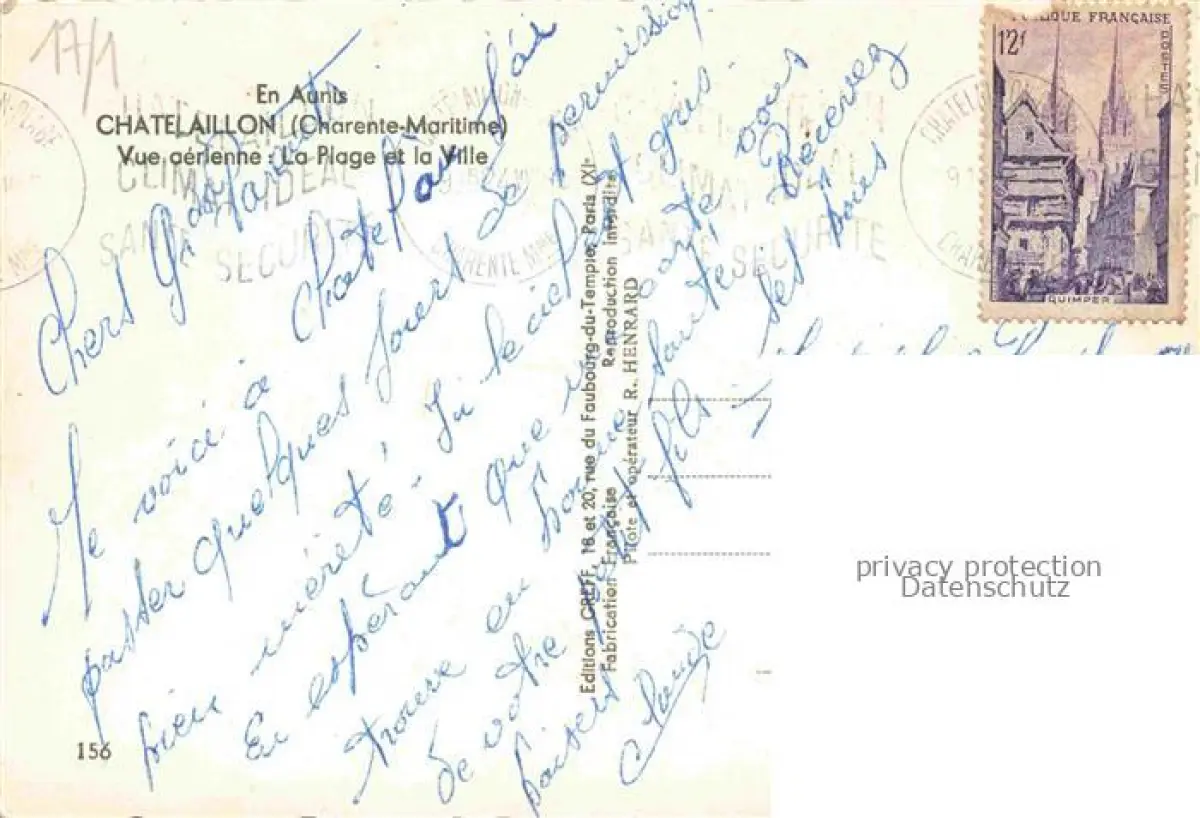 17/1
En Aunis
CHATELAILLON (Charente-Maritime)
Vue aérienne : La Plage et la Ville
CLIMAT IDEAL
SANTE
SECURITE
Chers Grds Parents
Me voici à Chatel
passer quelques jours de permission
bien mérité. Ici le ciel est gris
En espérant que
trouve en bonne santé
de votre petit fils
Recevez
baisers
Claude
156
Editions GREFF, 18 et 20, rue du Faubourg-du-Temple, Paris (XI
Fabrication Française Reproduction interdite
Pilote et opérateur R. HENRARD
PUBLIQUE FRANÇAISE
12f
POSTES
QUIMPER
CHATELAILLON
CHARENTE MME
SANTE
SECURITE
privacy protection
Datenschutz